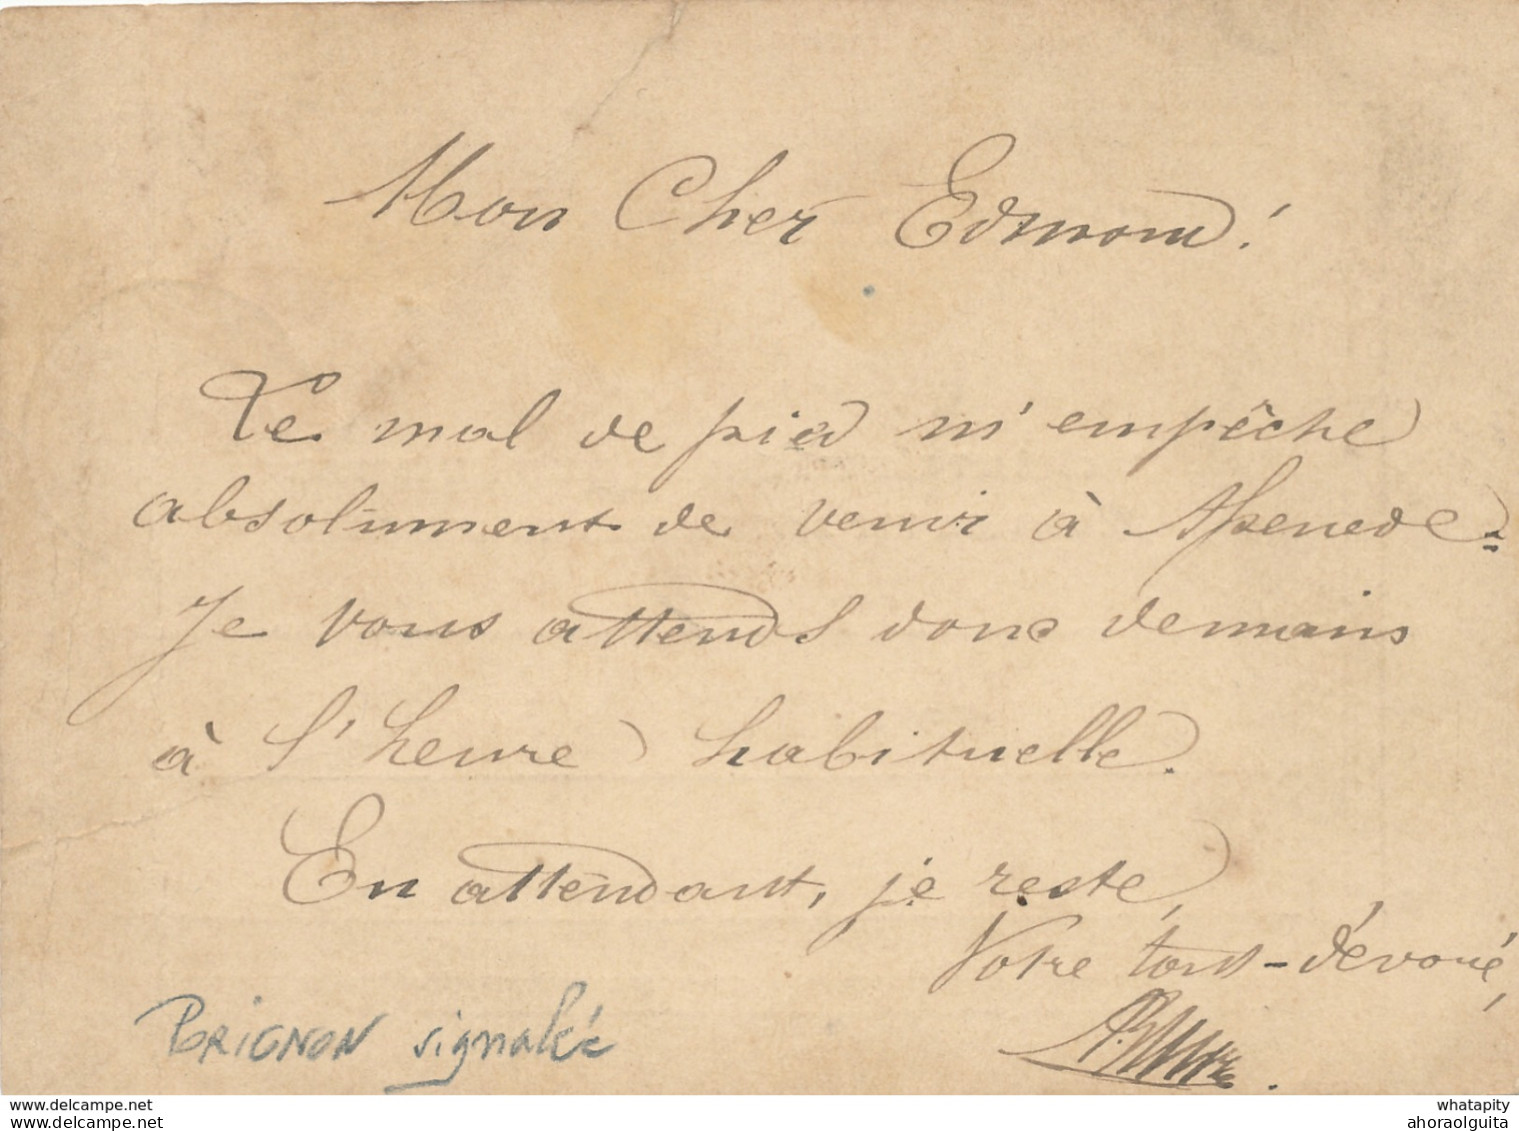 Mon Cher Edmond!
Le mal de pied m'empêche
absolument de venir à Apenede=
Je vous attends donc demain
à l'heure habituelle.
En attendant, je reste,
Votre tout-dévoué,
BRIGNON signalée
whatapity
ahoraolguita
whatapity.delcampe.net
ahoraolguita.delcampe.net